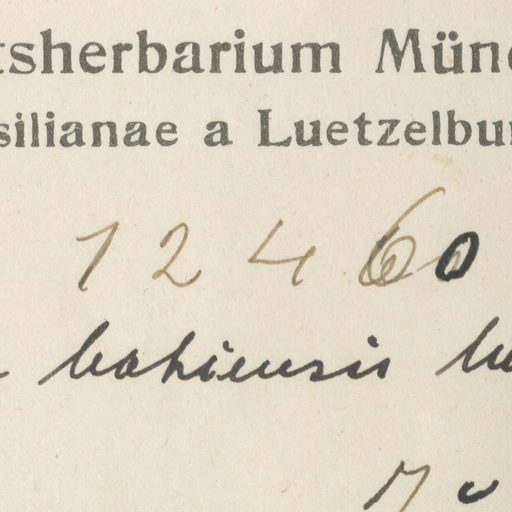 tsherbarium Mün
silianae a Luetzelbur
12460
bahiensis